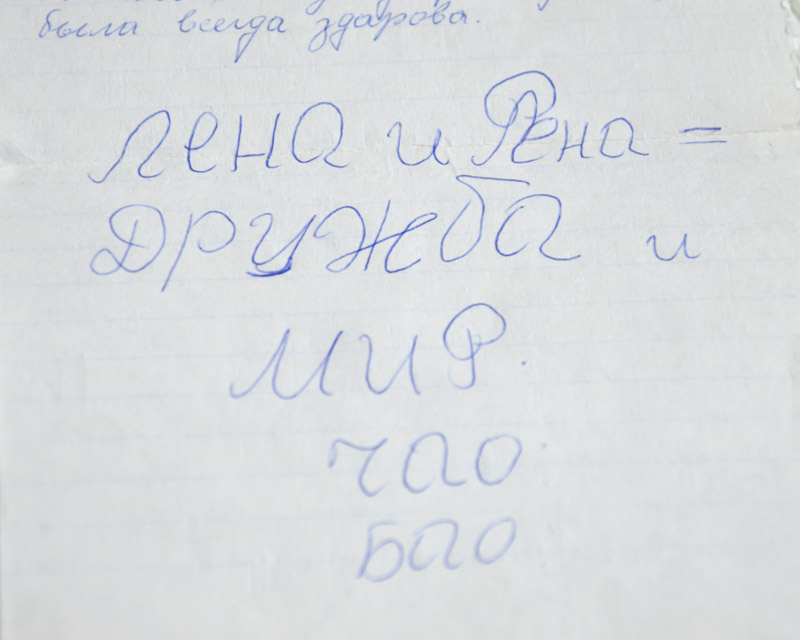 была всегда здарова.
лена и Рена =
ДРУЖБА и
МИР.
чао
бао